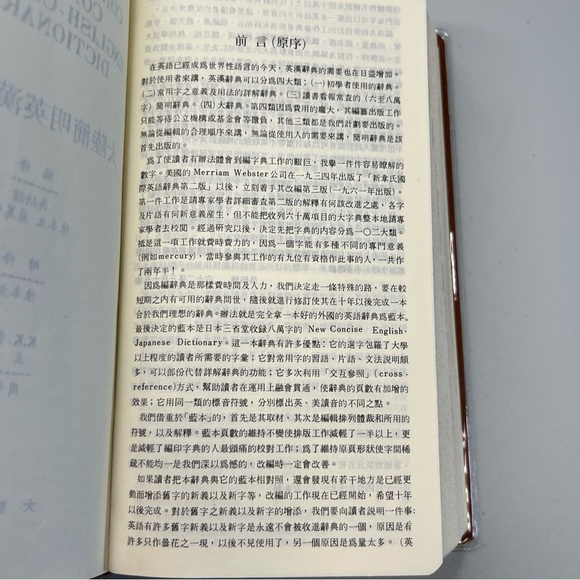 CO
CO
ENGLISH-C
DICTIONAR
大陸簡明英漢
前言(原序)
在英語已經成爲世界性語言的今天，英漢辭典的需要也在日益增加。
對於使用者來講，英漢辭典可以分爲四大類：(一)初學者使用的辭典。
(二)常用字之意義及用法的詳解辭典。(三)讀書看報常査的(六至八萬
字)簡明辭典。(四)大辭典。第四類因爲費用的龐大，其編纂出版工作
只能等待公立機構或基金會等擔負，其他三類都是我們計劃要出版的。
無論從編輯的合理順序來講，無論從使用人的需要來講，簡明辭典是該
首先出版的。
爲了使讀者有辦法體會到編字典工作的艱巨，我舉一件件容易瞭解的
數字。美國的Merriam Webster公司在一九三四年出版了「新韋氏國
際英語辭典第二版」以後，立刻着手其改編第三版(一九六一年出版)。
第一件工作是請專家學者詳細審査第二版的解釋有何該改進之處，各字
及片語有何新意義產生，但不能把收列六十萬項目的大字典整本地請專
家學者去校閱。經過研究以後，決定先把字典的內容分爲一〇二大類。
祗是這一項工作就費時費力的，因爲一個字能有多種不同的專門意義
(例如mercury)，當時參與其工作的有九位有資格作此事的人，一共作
了兩年半！。
因爲編辭典是那樣費時間及人力，我們決定走一條特殊的路，要在較
短期之內有可用的辭典問世，隨後就進行修訂使其在十年以後完成一本
合於我們理想的辭典。辦法就是完全拿一本好的外國的英語辭典爲藍本。
最後決定的藍本是日本三省堂收錄八萬字的 New Concise English-
Japanese Dictionary。這一本辭典有許多優點：它的選字包羅了大學
以上程度的讀者所需要的字彙；它對常用字的習語、片語、文法說明頗
多，可以部份代替詳解辭典的功能；它多次利用「交互參照」(cross-
reference)方式，幫助讀者在運用上融會貫通，使辭典的頁數有加增的
效果；它用同一類的標音符號，分別標出英、美讀音的不同之點。
我們借重於「藍本」的，首先是其取材，其次是編輯排列體裁和所用的
符號，以及解釋。藍本頁數的維持不變使排版工作減輕了一半以上，更
是減輕了編印字典的人最頭痛的校對工作；爲了維持原頁形狀使字間稀
疏不能均一是我們深以爲憾的，改編時一定會改善。
如果讀者把本辭典與它的藍本相對照，還會發現有若干地方是已經更
動而增添舊字的新義以及新字等，改編的工作現在已經開始，希望十年
以後完成。對於舊字之新義以及新字的增添，我們要向讀者說明一件事：
英語有許多舊字新義以及新字是永遠不會被收進辭典的一個，原因是有
許多只作曇花之一現，以後不見使用了，另一個原因是爲量太多。(英